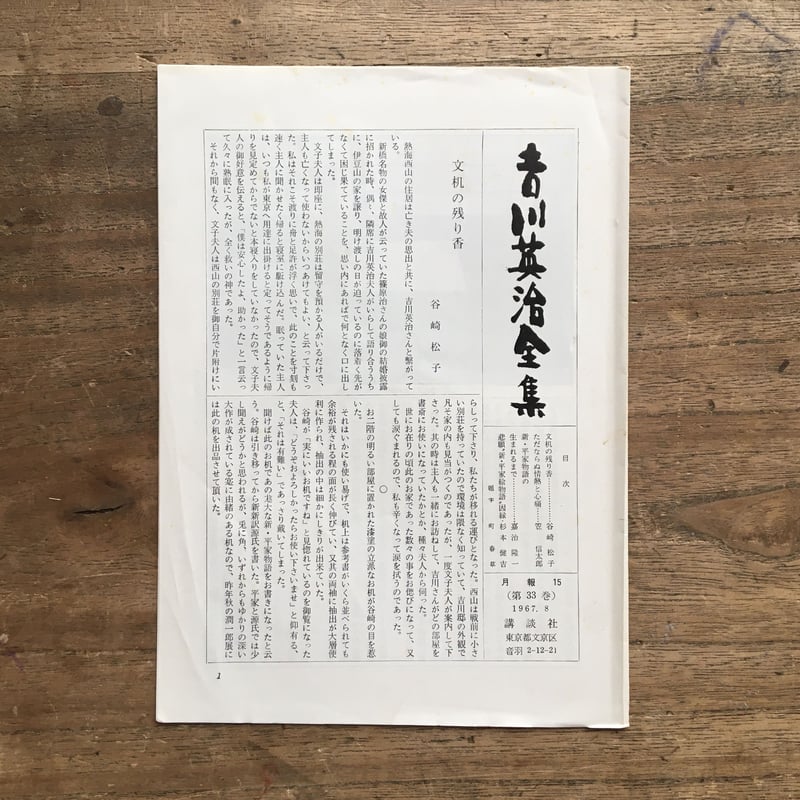 吉川英治全集
目次
文机の残り香………谷崎松子
ただならぬ情熱と心構………笠信太郎
新・平家物語の
生まれるまで………嘉治隆一
悲願、新・平家絵物語の因縁 杉本健吉
題字 町春草
月報 15
(第33巻)
1967.8
講談社
東京都文京区
音羽 2-12-21
文机の残り香
谷崎松子
熱海西山の住居は亡き夫の思出と共に、吉川英治さんと繋がって
いる。
新橋名物の女傑と故人が云っていた篠原治さんの娘御の結婚披露
に招かれた時、偶〻、隣席に吉川英治夫人がいらして語り合ううち
に、伊豆山の家を譲り、明け渡しの日が迫っているのに落着く先が
なくて困じ果てていることを、思い内にあればで何となく口に出し
てしまった。
文子夫人は即座に、熱海の別荘は留守を預かる人がいるだけで、
主人も亡くなって使わないからいつあけてもよい、と云って下さっ
た。私はそれこそ渡りに舟と足許が浮く思いで、此のことを寸刻も
速く主人に聞かせたく帰ると寝室に駆け込んだ。眠っていた主人
は、いつも私が東京へ用達に出掛けると定ってそうであるように帰
りを見定めてからでないと本寝入りをしていなかったので、文子夫
人の御好意を伝えると、「僕は安心したよ、助かった」と一言云っ
て久々に熟眠に入ったが、全く救いの神であった。
それから間もなく、文子夫人は西山の別荘を御自分で片附けにい
らしって下さり、私たちが移れる運びとなった。西山は戦前に小さ
い別荘を持っていたので環境は隈なく知っていて、吉川邸の外観で
凡そ家の内も見当がつくのであったが、一度文子夫人が案内して下
さった。其の時は主人も一緒にお訪ねして、吉川さんがどの部屋を
書斎にお使いになっていたかとか、種々夫人から伺った。
世にお在りの頃此のお家であった数々の事をお偲びになって、又
しても涙ぐまれるので、私も辛くなって涙を拭うのであった。
○
お二階の明るい部屋に置かれた漆塗の立派なお机が谷崎の目を惹
いた。
それはいかにも使い易げで、机上は参考書がいくら並べられても
余裕が残される程の面が長く伸びてい、又其の両袖に抽出が大層便
利に作られ、抽出の中は細かにしきりが出来ていた。
谷崎が、「実にいいお机ですね」と見惚れているのを御覧になった
夫人は、「どうぞおよろしかったらお使い下さいませ」と仰有る、
と、「それは有難い」であっさり戴いてしまった。
聞けば此のお机であの厖大な新・平家物語をお書きになったと云
う。谷崎は引き移ってから新新訳源氏を書いた。平家と源氏では少
し聞えがどうかと思われるが、兎に角、いずれからもゆかりの深い
大作が成されている寔に由緒のある机なので、昨年秋の潤一郎展に
は此の机を出品させて頂いた。
1